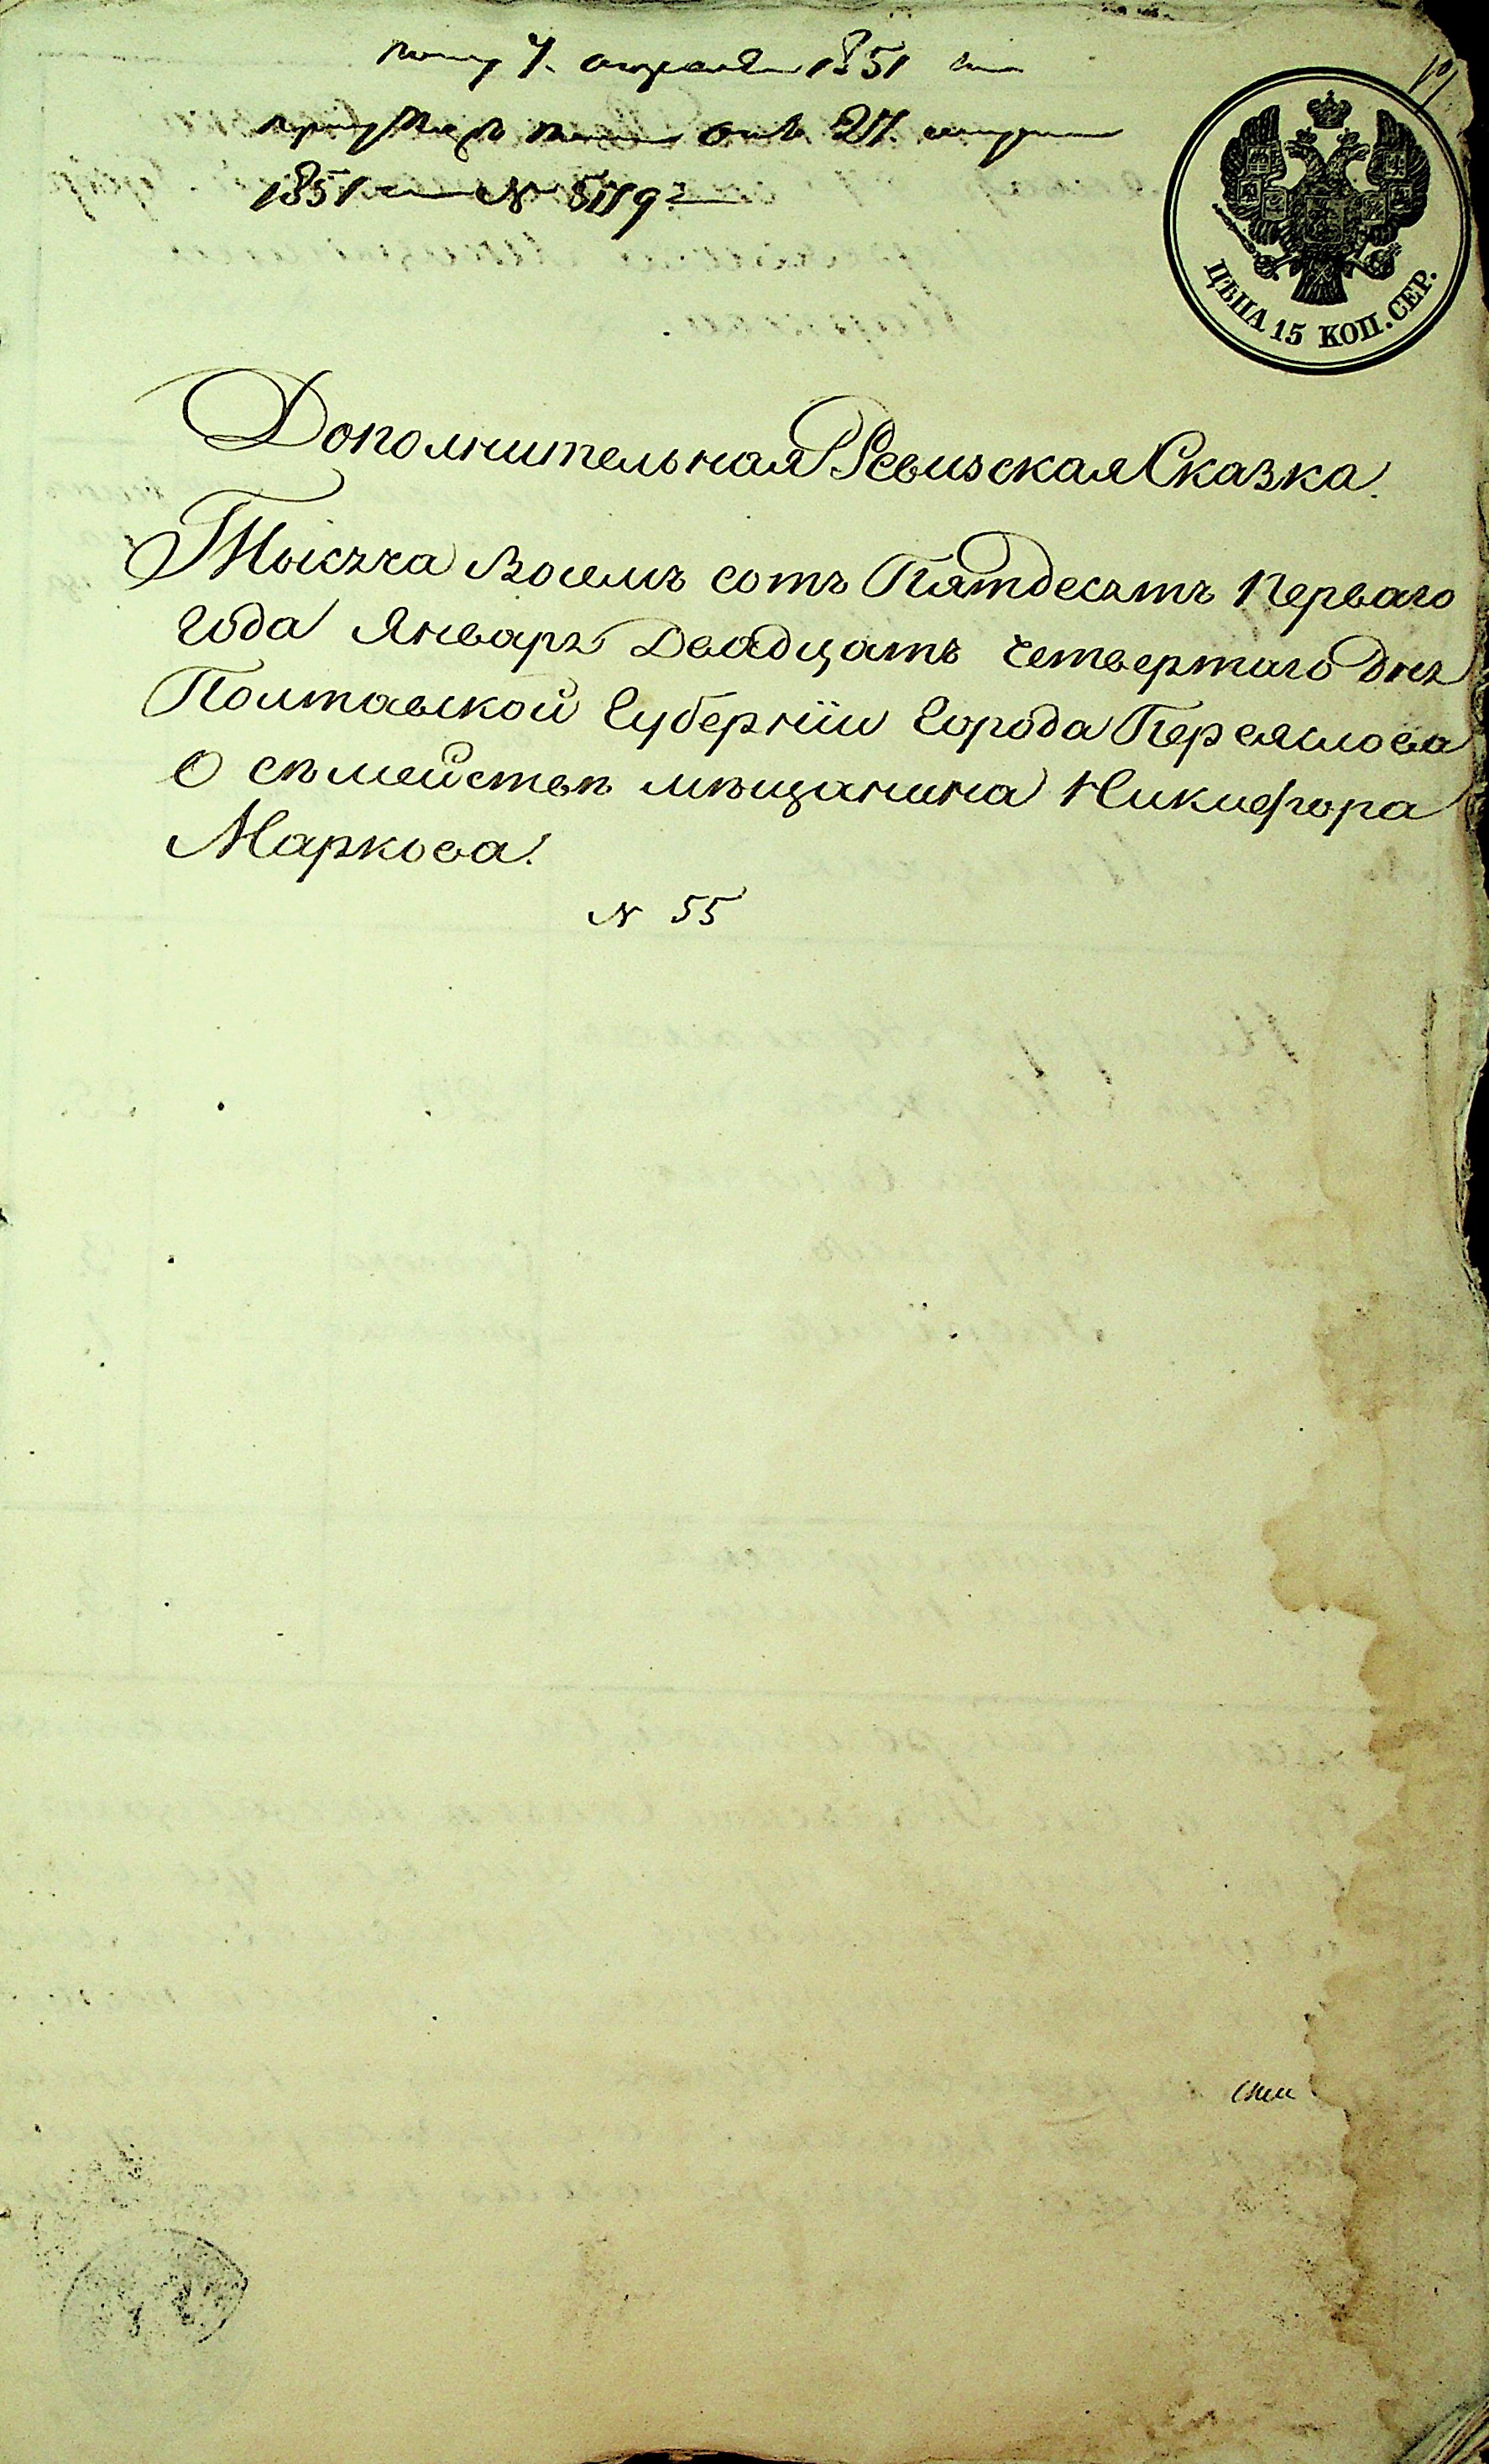 7. апреля 1851
отъ 27.
1851 № 5119
ЦѢНА 15 КОП. СЕР.
Дополнительная Ревизская Сказка.
Тысяча Восемь сотъ Пятдесятъ Перваго
года Января Двадцать четвертаго дня
Полтавской Губернiи Города Переяслова
О сѣмействѣ мѣщанина Никифора
Маркова.
№ 55